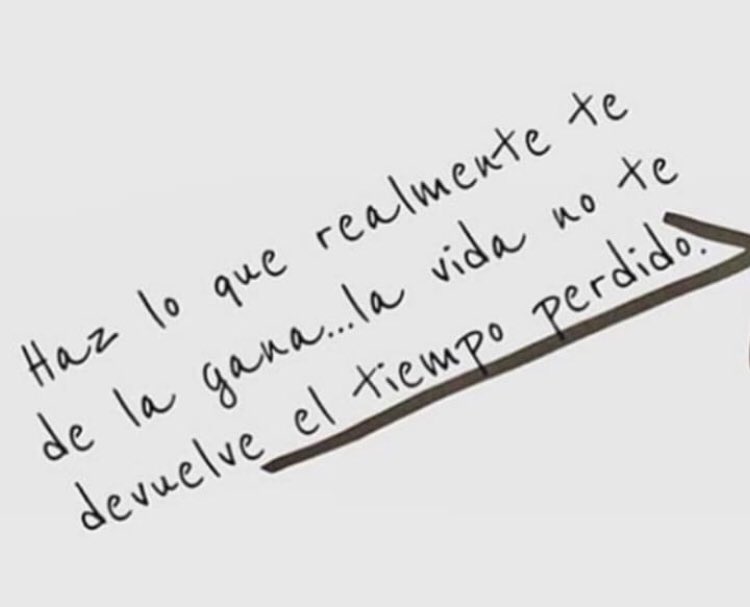 Haz lo que realmente te
de la gana...la vida no te
devuelve el tiempo perdido.